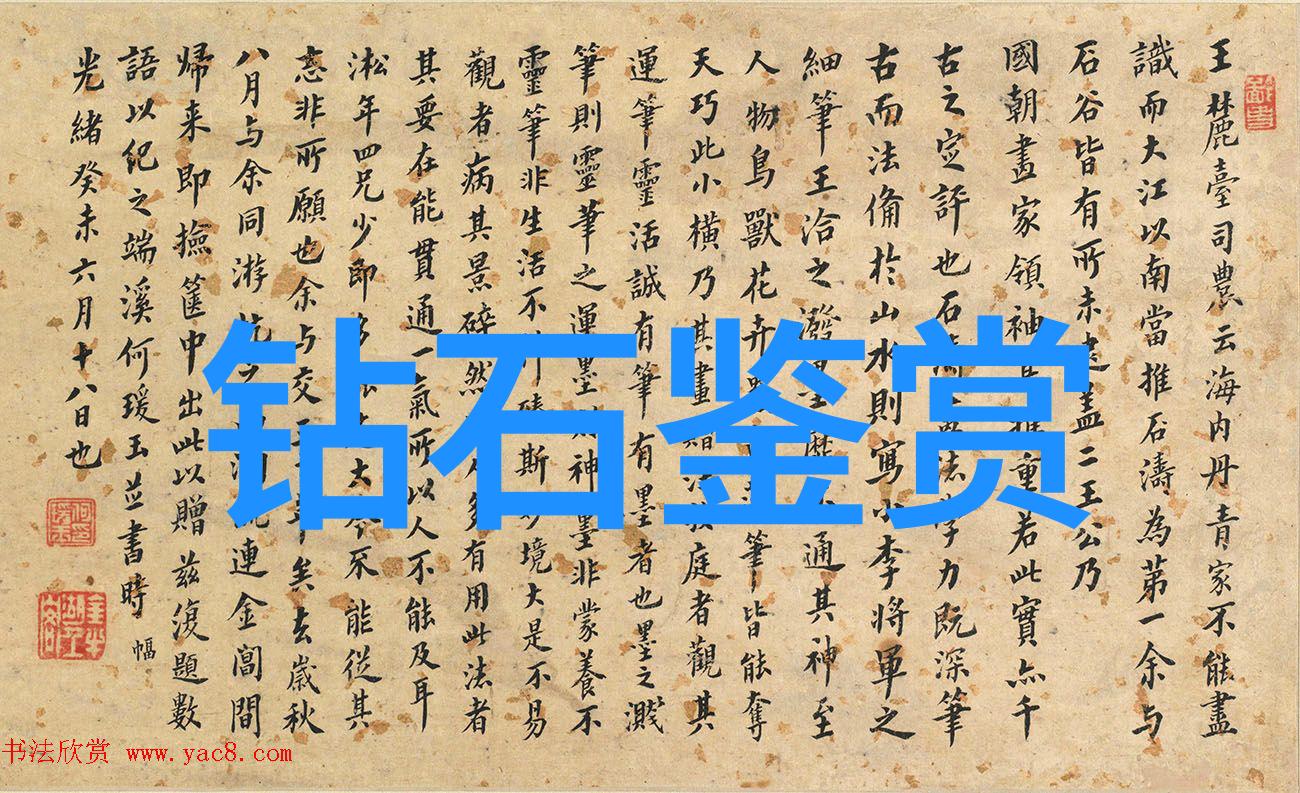 王麓臺司農云海内丹青家不能盡
識而大江以南當推石濤為第一余與
石谷皆有所未逮盖二王公乃
國朝畫家領袖其推重若此實亦千
古之定評也石濤字力既深筆
古而法備於山水則寫小李將軍之
細筆王洽之潑墨通其神至
人物鳥獸花卉筆皆能奪
天巧此小橫乃其畫庭者觀其
運筆靈活誠有筆有墨者也墨之濺
筆則靈筆之運墨則神墨非蒙養不
靈筆非生活不斯妙境大是不易
觀者病其景碎然有用此法者
其要在能貫通一氣所以人不能及耳
淞年四兄少即大不能從其
志非所願也余与交年矣去歲秋
八月与余同游連金閶間
歸来即撿篋中出此以贈兹復題數
語以紀之端溪何瑗玉並書時
幅
光緒癸未六月十八日也
钻石鉴赏
书法欣赏 www.yac8.com